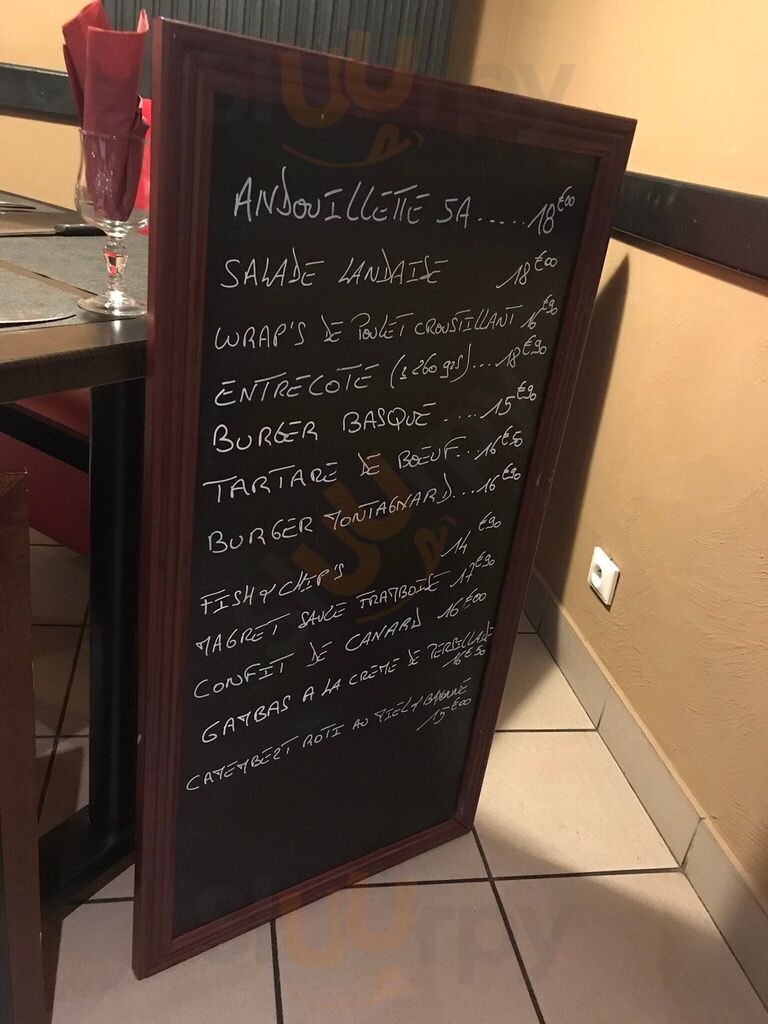 ANDOUILLETTE 5A ..... 18€00
SALADE LANDAISE 18€00
WRAP'S DE POULET CROUSTILLANT 16€90
ENTRECOTE (± 260 grs).... 18€90
BURGER BASQUE .... 15€90
TARTARE DE BOEUF.. 16€50
BURGER MONTAGNARD... 16€90
FISH & CHIP'S 14€90
MAGRET SAUCE FRAMBOISE 17€90
CONFIT DE CANARD 16€00
GAMBAS A LA CREME DE PERSILLADE
16€50
CAMEMBERT ROTI AU MIEL & BAYONNE
15€00
sluurpy
sluurpy
sluurpy